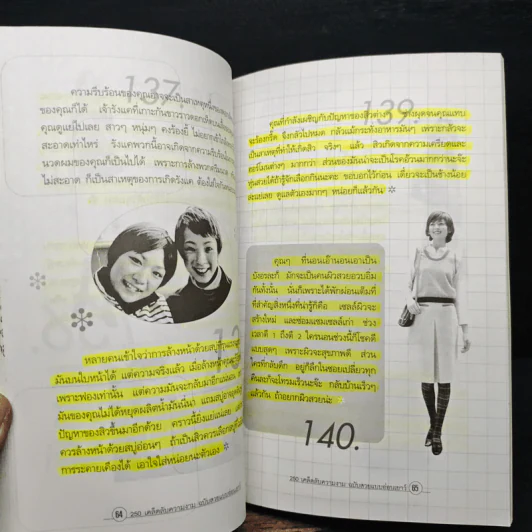 137.
ความรีบร้อนของคุณอาจจะเป็นสาเหตุหนึ่ง
ของคุณก็ได้ เจ้ารังแคที่เกาะกันขาวราวดอกเลา
คุณดูแย่ไปเลย สาวๆ หนุ่มๆ คงร้องยี้ ไม่อยาก
สะอาดเท่าไหร่ รังแคพวกนี้อาจเกิดจากความรีบร้อน
นวดผมของคุณก็เป็นไปได้ เพราะการล้างพวกครีมนวด
ไม่สะอาด ก็เป็นสาเหตุของการเกิดรังแค ต้องใส่ใจ
หลายคนเข้าใจว่าการล้างหน้าด้วยสบู่
มันบนใบหน้าได้ แต่ความจริงแล้ว เมื่อล้างหน้า
เพราะฟองเท่านั้น แต่ความมันจะกลับมาอีก
มันของคุณไม่ได้หยุดผลิตน้ำมันนี่นา แถมสบู่อาจ
ปัญหาของสิวขึ้นมาอีกด้วย คราวนี้ยิ่งแย่
ควรล้างหน้าด้วยสบู่อ่อนๆ ถ้าเป็นสิวควรเลือก
การระคายเคืองได้ เอาใจใส่หน่อยนะตัวเอง
64 250 เคล็ดลับความงาม ฉบับสวยแบบซ่อนเขาว์
139.
คุณที่กำลังเผชิญกับปัญหาของสิวต่างๆ
จะร้องกรี๊ด จึงกลัวไปหมด กลัวแม้กระทั่งอาหารมันๆ เพราะกลัวจะ
เป็นสาเหตุที่ทำให้เกิดสิว จริงๆ แล้ว สิวเกิดจากความเครียดและ
ฮอร์โมนต่างๆ มากกว่า ส่วนของมันน่าจะเป็นโรคอ้วนมากกว่านะจะ
หุ่นสวยได้ถ้ารู้จักเลือกกินนะคะ ขอบอกไว้ก่อน เดี๋ยวจะเป็นช้างน้อย
ละแย่เลย ดูแลตัวเองมากๆ หน่อยก็แล้วกัน
คุณๆ ที่นอนเอ้านอนเอาเป็น
บังอรละก็ มักจะเป็นคนผิวสวยอวบอิ่ม
กันทั้งนั้น นั่นก็เพราะได้พักผ่อนเต็มที่
ที่สำคัญสิ่งหนึ่งที่น่ารู้ก็คือ เซลล์ผิวจะ
สร้างใหม่ และซ่อมแซมเซลล์เก่า ช่วง
เวลาตี 1 ถึงตี 2 ใครนอนช่วงนี้ก็โชคดี
แบบสุดๆ เพราะผิวจะสุขภาพดี ส่วน
ใครที่กลับดึก อยู่กึ๊กในซอยเปลี่ยวทุก
คืนละก็จะโทรมเร็วนะจ๊ะ กลับบ้านเร็วๆ
แล้วกัน ถ้าอยากผิวสวยนะ
140.
250 เคล็ดลับความงาม ฉบับสวยแบบซ่อนเขาว์ 65